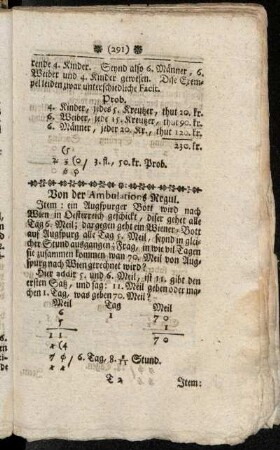 (291)
tende 4. Kinder. Seynd also 6. Männer, 6.
Weiber und 4. Kinder gewesen. Dise Exem-
pel leiden zwar unterschiedliche Facit.
Prob.
4. Kinder, jedes 5. Kreutzer, thut 20. kr.
6. Weiber, jede 15. Kreutzer, thut 90. kr.
6. Männer, jeder 20. Kr., thut 120. kr.
230. kr.
(5
2 3 (0 / 3. fl., 50. kr. Prob.
6 0
Von der Ambulations Regul.
Item: ein Augspurger Bott wird nach
Wien in Oesterreich geschickt, diser gehet alle
Tag 6. Meil; dargegen geht ein Wiener-Bott
auf Augspurg alle Tag 5. Meil, seynd in glei-
cher Stund ausgangen; Frag, in wie vil Tagen
sie zusammen kommen wan 70. Meil von Aug-
spurg nach Wien gerechnet wird?
Hier addir 5. und 6. Meil, ist 11. gibt den
ersten Satz, und sag: 11. Meil geben oder ma-
chen 1. Tag, was geben 70. Meil?
Meil Tag Meil
6 1 70
5 1
11 70
x (4
7 0 / 6. Tag, 8. 8/11 Stund.
x x
T 2 Item: